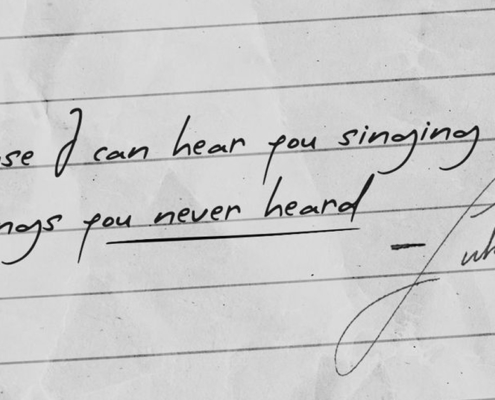 se I can hear you singing
ngs you never heard